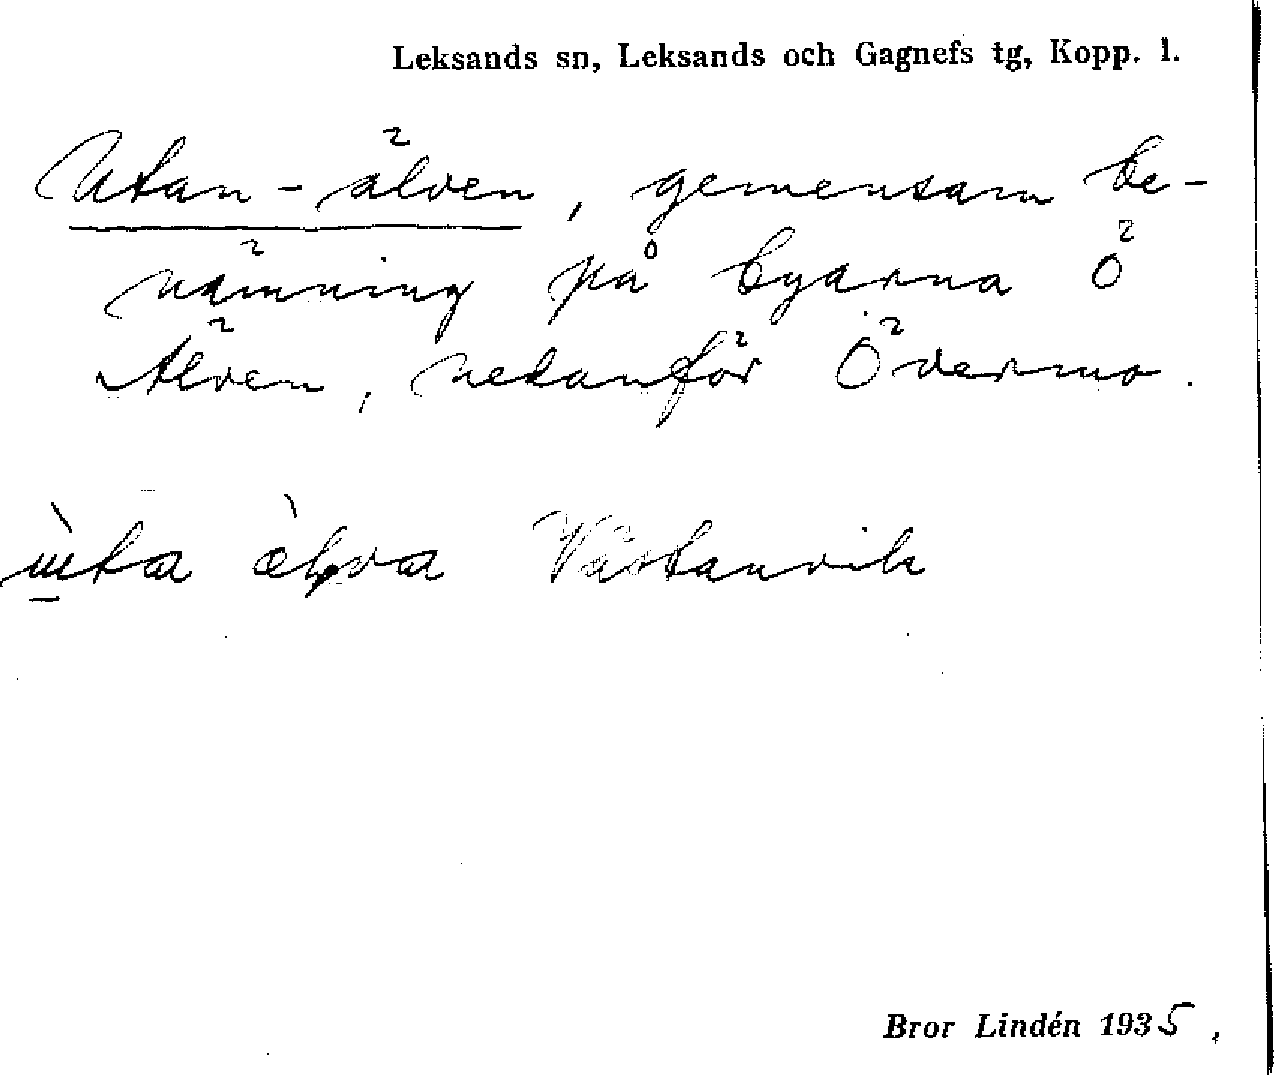 Leksands sn, Leksands och Gagnefs tg, Kopp. l.
Utan-älven, gemensam be-
nämning på byarna Ö
Älven, nedanför Övermo.
Västanvik
Bror Lindén 1935.